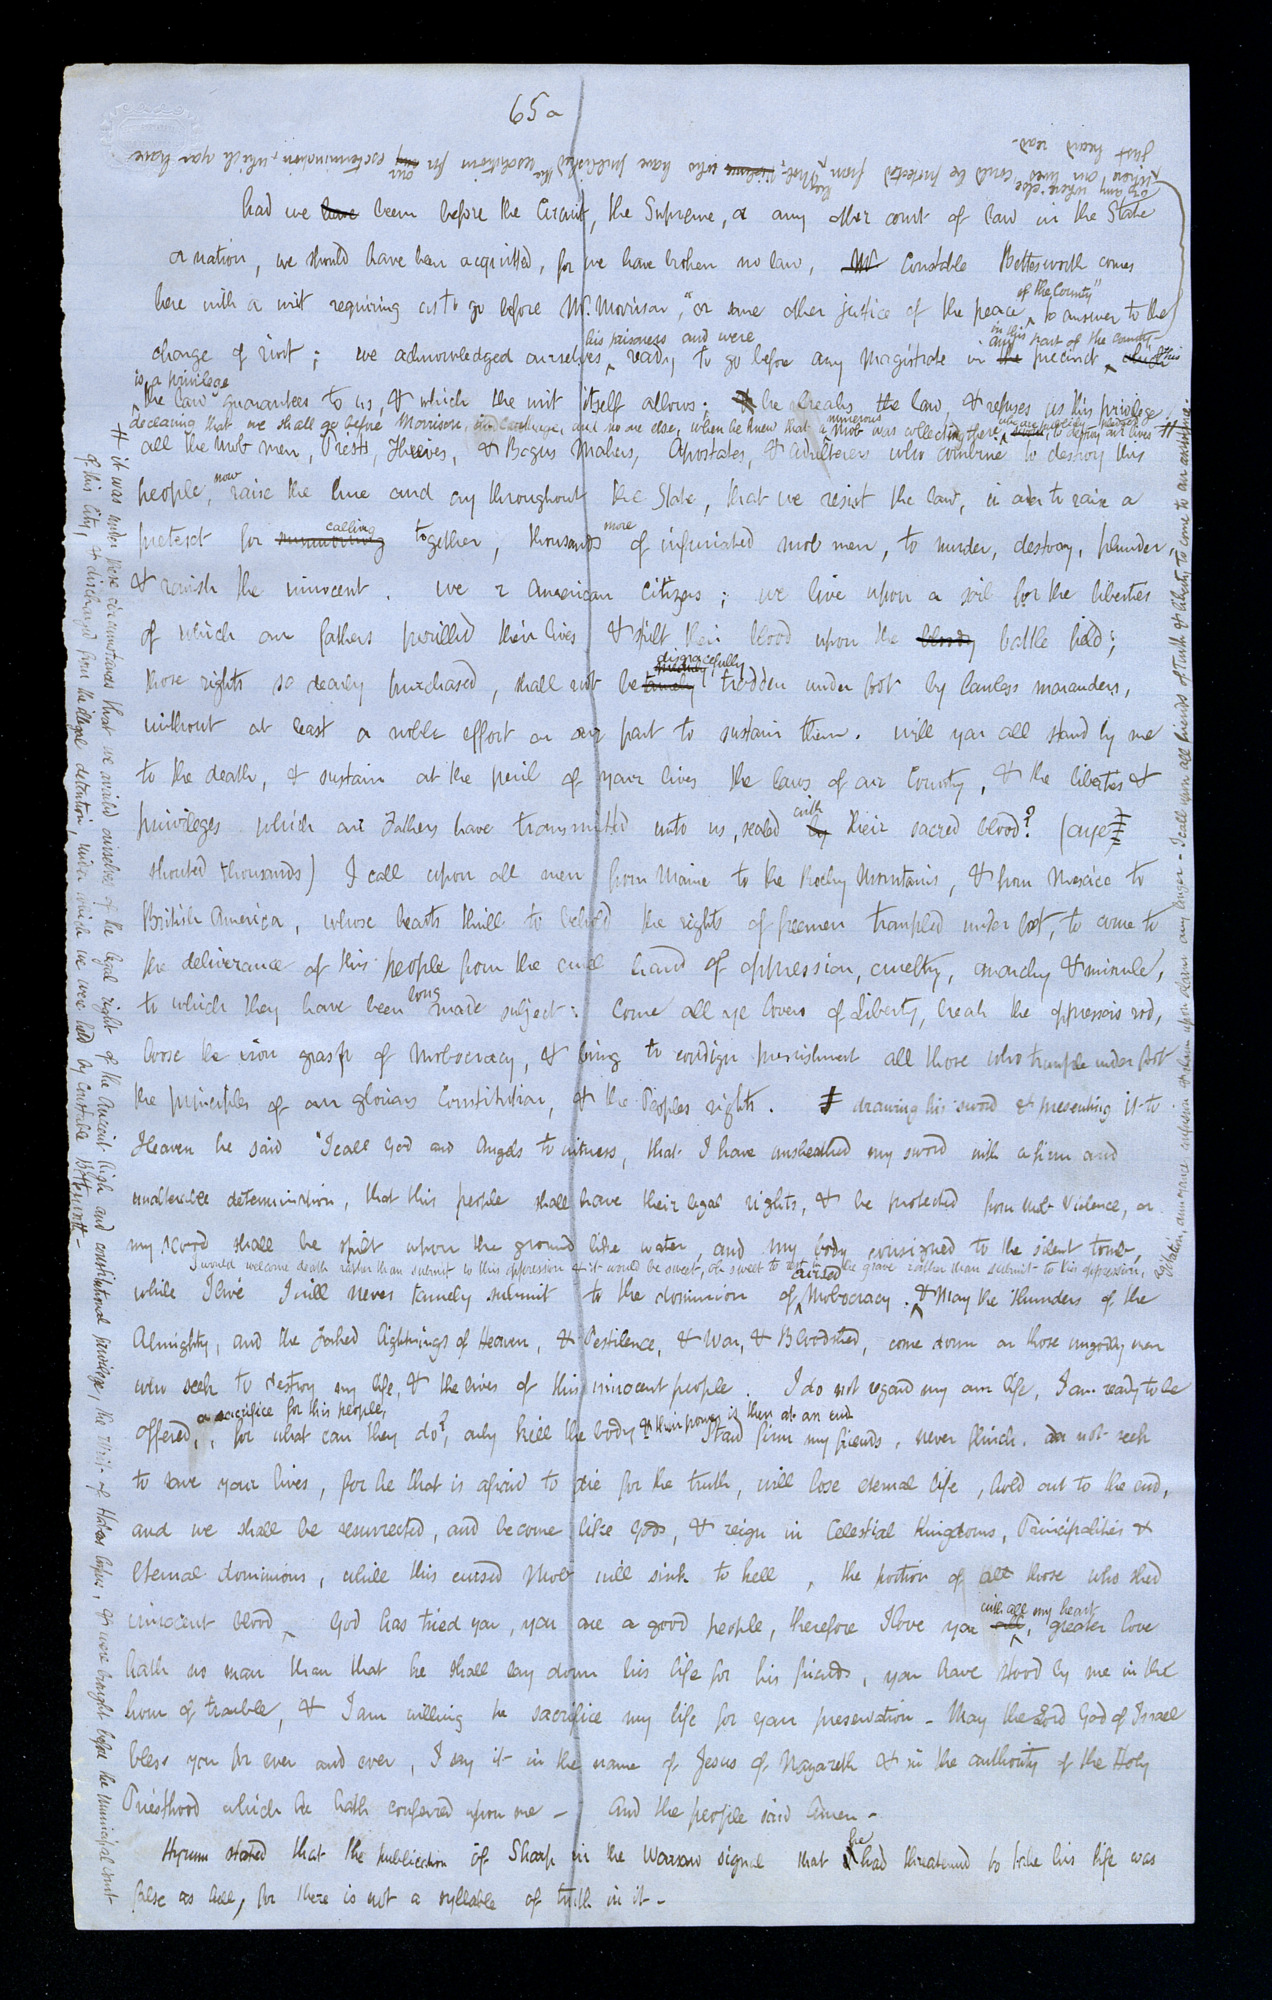 65a
or any where else where our lives could be protected from the Mob, who have published the resolutions for our extermination, which you have
just heard read.
had we have been before the Circuit, the Supreme, or any other court of law in the State
or nation, we should have been acquitted, for we have broken no law, Mr Constable Bettisworth comes
here with a writ requiring us to go before Mr. Morrison, "or some other justice of the peace of the County" to answer to the
charge of riot; we acknowledged ourselves his prisoners and were ready to go before any Magistrate in the any precinct in this part of the county-
is a privilege
the law guarantees to us, & which the writ itself allows; he breaks the law, & refuses us this privilege,
declaring that we shall go before Morrison, in Carthage, and no one else, when he knew that a numerous mob was collecting there, who are publicly pledged to destroy our lives #
all the Mob men, Priests, Thieves, & Bogus Makers, Apostates, & adulterers who combine to destroy this
people, now raise the hue and cry throughout the State, that we resist the law, in order to raise a
pretext for summoning calling together, thousands more of infuriated mob men, to murder, destroy, plunder,
& ravish the innocent. we r American Citizens; we live upon a soil for the liberties
of which our fathers perilled their lives & spilt their blood upon the bloody battle field;
those rights so dearly purchased, shall not be tamely disgracefully trodden under foot by lawless marauders,
without at least a noble effort on our part to sustain them. will you all stand by me
to the death, & sustain at the peril of your lives the laws of our Country, & the liberties &
privileges which our Fathers have transmitted unto us, sealed by with their sacred blood? (aye
shouted thousands) I call upon all men from Maine to the Rocky Mountains, & from Mexico to
British America, whose hearts thrill to behold the rights of freemen trampled under foot, to come to
the deliverance of this people from the cruel hand of oppression, cruelty, anarchy & misrule,
to which they have been long made subject: Come all ye lovers of Liberty, break the oppressors rod,
loose the iron grasp of Mobocracy, & bring to condign punishment all those who trample under foot
the principles of our glorious Constitution, & the Peoples rights. drawing his sword & presenting it to
Heaven he said "I call God and Angels to witness, that I have unsheathed my sword with a firm and
unalterable determination, that this people shall have their legal rights, & be protected from Mob Violence, or
my blood shall be spilt upon the ground like water, and my body consigned to the silent tomb,
I would welcome death rather than submit to this oppression & it would be sweet, oh sweet to rest in the grave rather than submit to this oppression,
while I live I will never tamely submit to the dominion of cursed Mobocracy. & May the thunders of the
Almighty, and the forked lightnings of Heaven, & Pestilence, & War, & Bloodshed, come down on those ungodly men
who seek to destroy my life, & the lives of this innocent people. I do not regard my own life, I am ready to be
offered, a sacrifice for this people, for what can they do? only kill the body & their power is then at an end Stand firm my friends, never flinch. do not seek
to save your lives, for he that is afraid to die for the truth, will lose eternal life, hold out to the end,
and we shall be resurrected, and become like Gods, & reign in Celestial Kingdoms, Principalities &
Eternal dominions, while this cursed Mob will sink to hell, the portion of all those who shed
innocent blood, God has tried you, you are a good people, therefore I love you all with all my heart, greater love
hath no man than that he shall lay down his life for his friends, you have stood by me in the
hour of trouble, & I am willing to sacrifice my life for your preservation - May the Lord God of Israel
bless you for ever and ever, I say it in the name of Jesus of Nazareth & in the authority of the Holy
Priesthood which he hath conferred upon me - And the people said Amen -
Hyrum stated that the publication of Sharp in the Warsaw signal that he had threatened to take his life was
false as hell, for there is not a syllable of truth in it -
# it was under these circumstances that we availed ourselves of the legal right of the ancient high and constitutional privilege, the writ of Habeas Corpus, & were brought before the Municipal Court
of this City, & discharged from the illegal detention, under which we were held by Constable Bettisworth -
I call upon all friends of truth & liberty to come to our assistance.